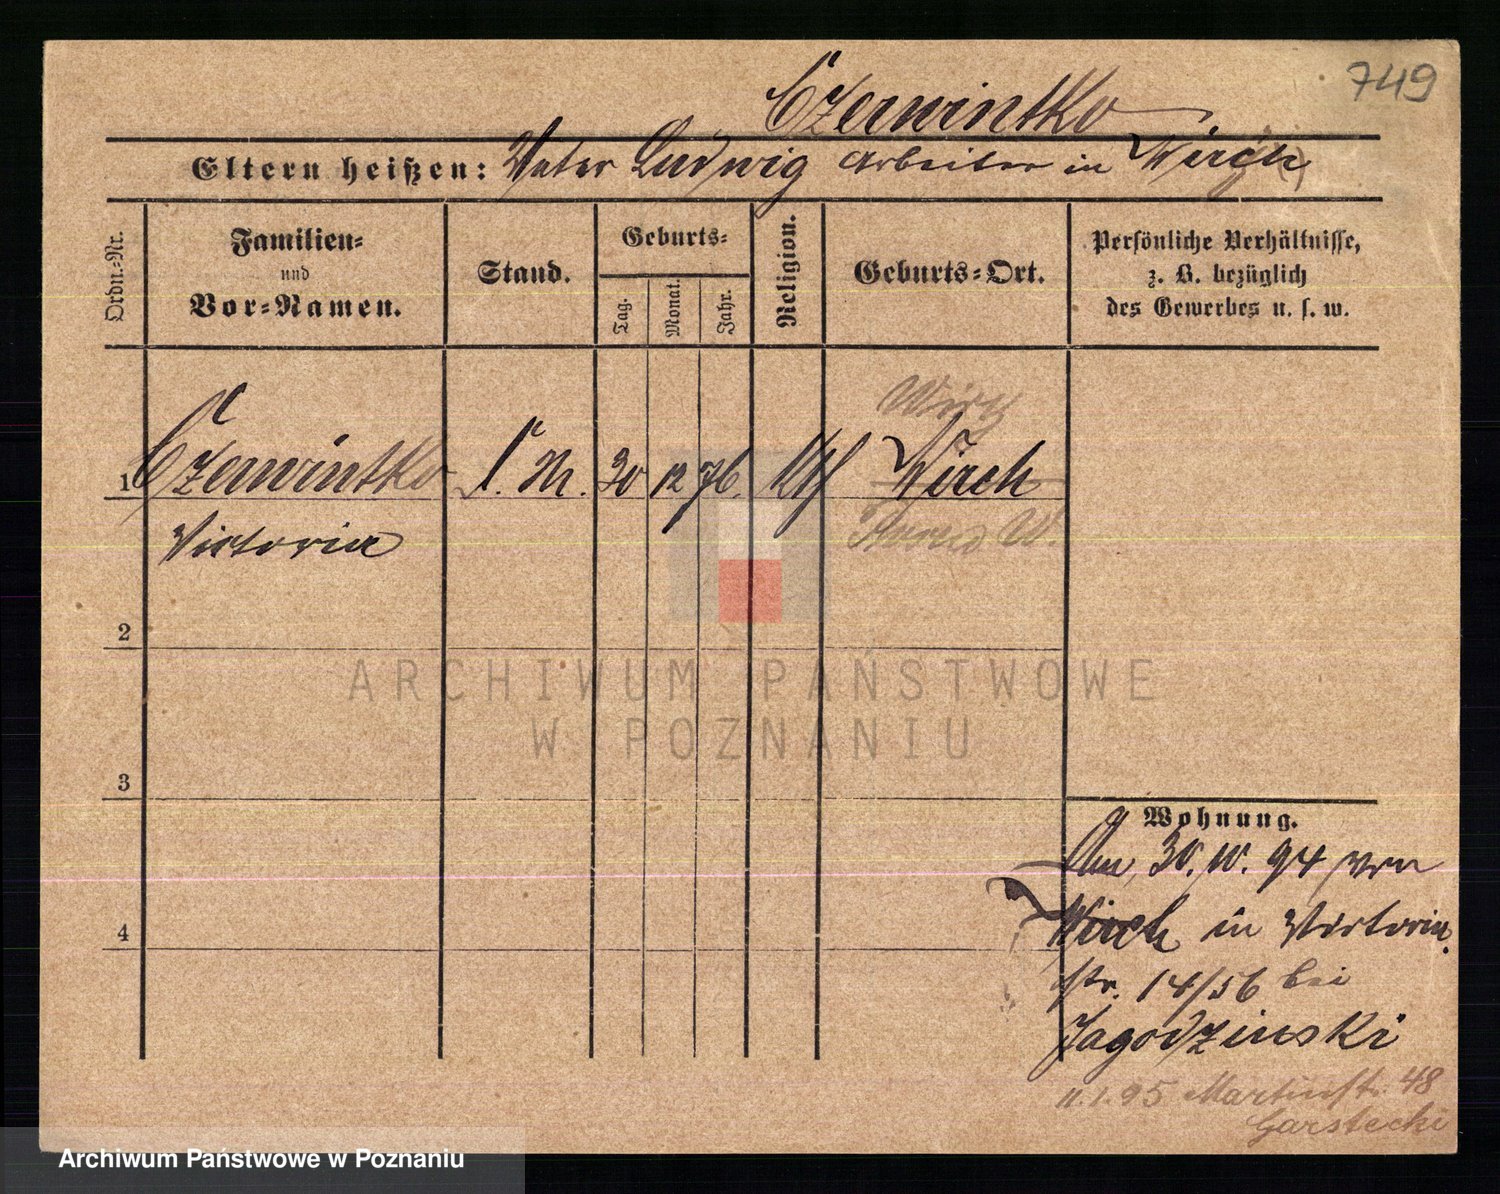 749
Czerwintko
Eltern heißen: Vater Ludwig Arbeiter in Wirch
Ordn.-Nr.
Familien-
und
Vor-Namen.
Stand.
Geburts-
Tag.
Monat.
Jahr.
Religion.
Geburts-Ort.
Persönliche Verhältnisse,
z. B. bezüglich
des Gewerbes u. s. w.
Wirz
1 Czerwintko 30 12 76. Kth Wirch
Victoria
2
3
4
Wohnung.
Am, 30. 10. 94 von
Wirch in Victoria
str. 14/56 bei
Jagodzinski
11.1.95 Martinstr. 48
Garstecki
ARCHIWUM PAŃSTWOWE
W POZNANIU
Archiwum Państwowe w Poznaniu